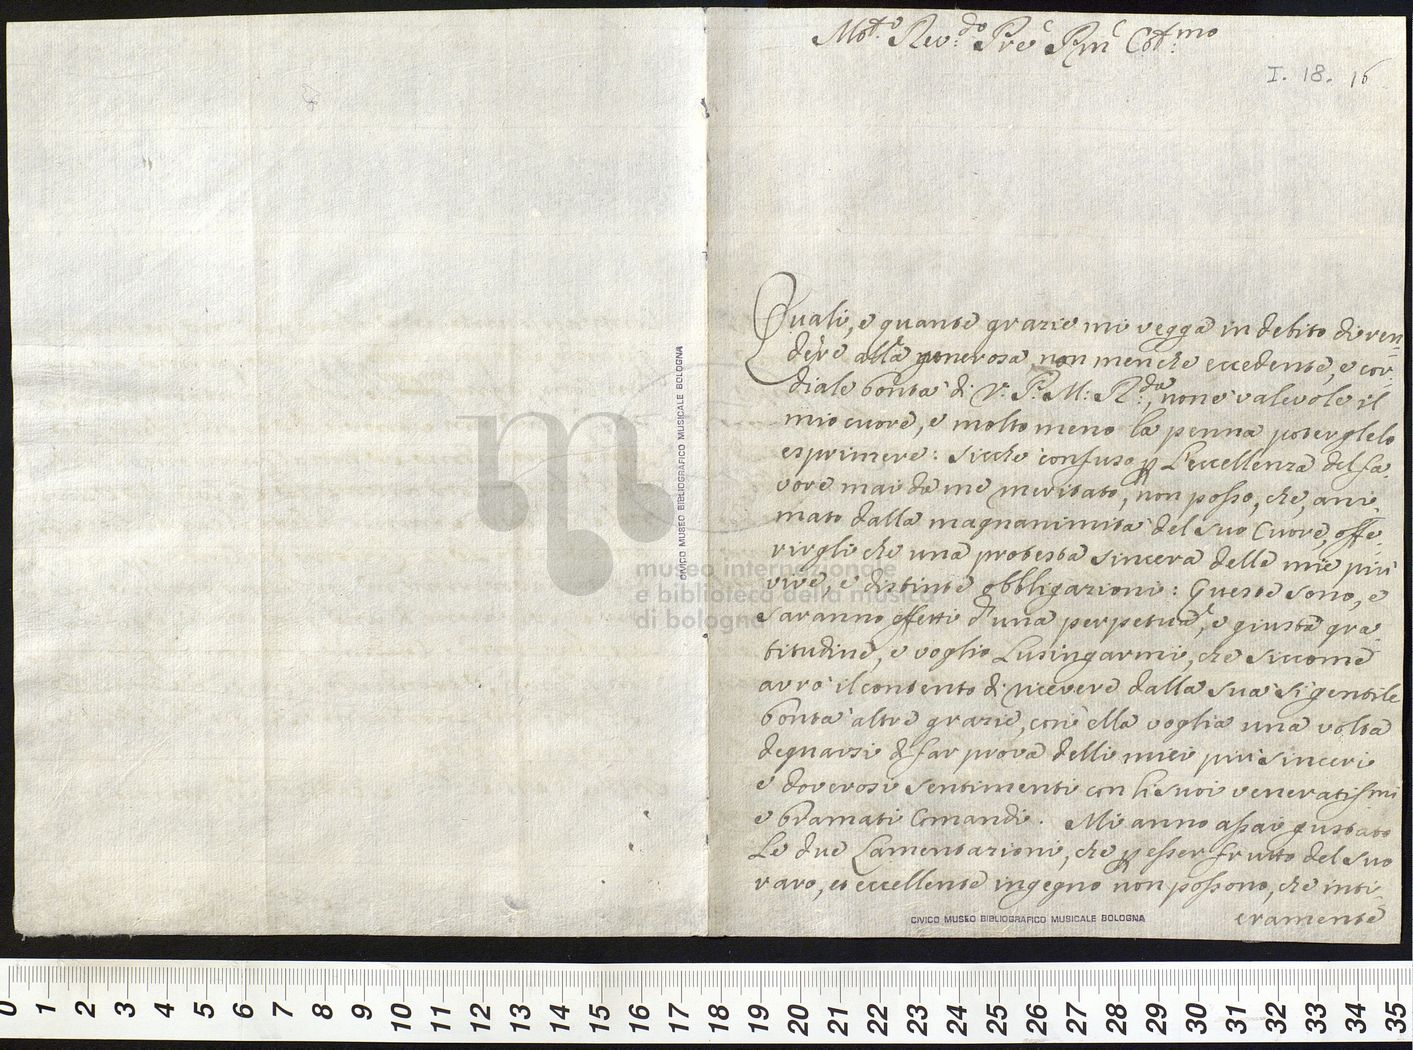 Molt.e Rev.do Pre Pr̃n Col.mo
I. 18. 16
Quali, e quante grazie mi vegga in debito di ren=
dere alla generosa non men che eccedente, e cor=
diale bontà di V. P. M: R.da, non è valevole il
mio cuore, e molto meno la penna poterglielo
esprimere: sicche confuso p l'eccellenza del fa=
vore mai da me meritato, non posso, che, ani=
mato dalla magnanimità del suo Cuore, offe=
rirgli che una protesta sincera delle mie più
vive, e distinte obbligazioni: Queste sono, e
saranno effetti d'una perpetua, e giusta gra=
titudine, e voglio Lusingarmi, che siccome
avrò il contento di ricevere dalla sua sì gentile
bontà altre grazie, così ella voglia una volta
degnarsi di far prova delli miei più sinceri
e doverosi sentimenti con li suoi veneratissmi
e bramati Comandi. Mi anno assai gustato
Le due Lamentazioni, che p esser frutto del suo
raro, et eccellente ingegno non possono, che inti=
eramente
CIVICO MUSEO BIBLIOGRAFICO MUSICALE BOLOGNA
CIVICO MUSEO BIBLIOGRAFICO MUSICALE BOLOGNA
museo internazionale
e biblioteca della musica
di bologna
0 1 2 3 4 5 6 7 8 9 10 11 12 13 14 15 16 17 18 19 20 21 22 23 24 25 26 27 28 29 30 31 32 33 34 35